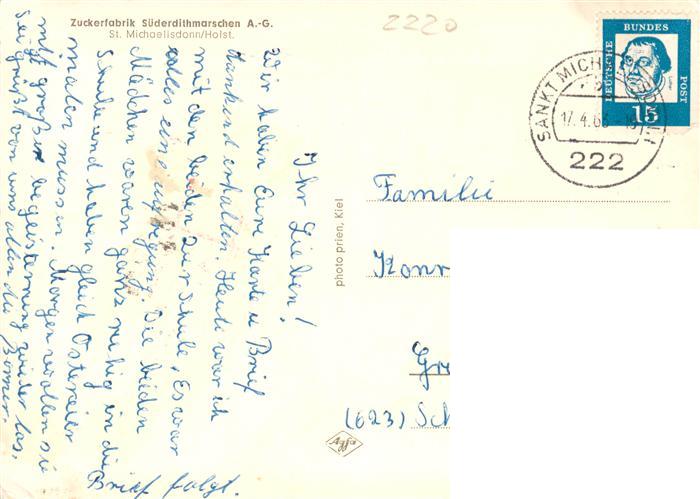 Zuckerfabrik Süderdithmarschen A.-G.
St. Michaelisdonn/Holst.
2220
DEUTSCHE BUNDES POST
15
SANKT MICHAELISDONN
17.4.63
222
Ihr Lieben!
Wir haben Eure Karte u Brief
dankend erhalten. Heute war ich
mit den beiden zur Schule, Es war
alles eine aufregung. Die beiden
Mädchen waren ganz ruhig in die
Schule und haben gleich Ostereier
malen müssen. Morgen wollen sie
mit großer begeisterung wieder los.
Seit gegrüßt von uns allen die
Brief folgt.
photo prien, Kiel
Agfa
Familie
Konr
Gr
(623) Sch